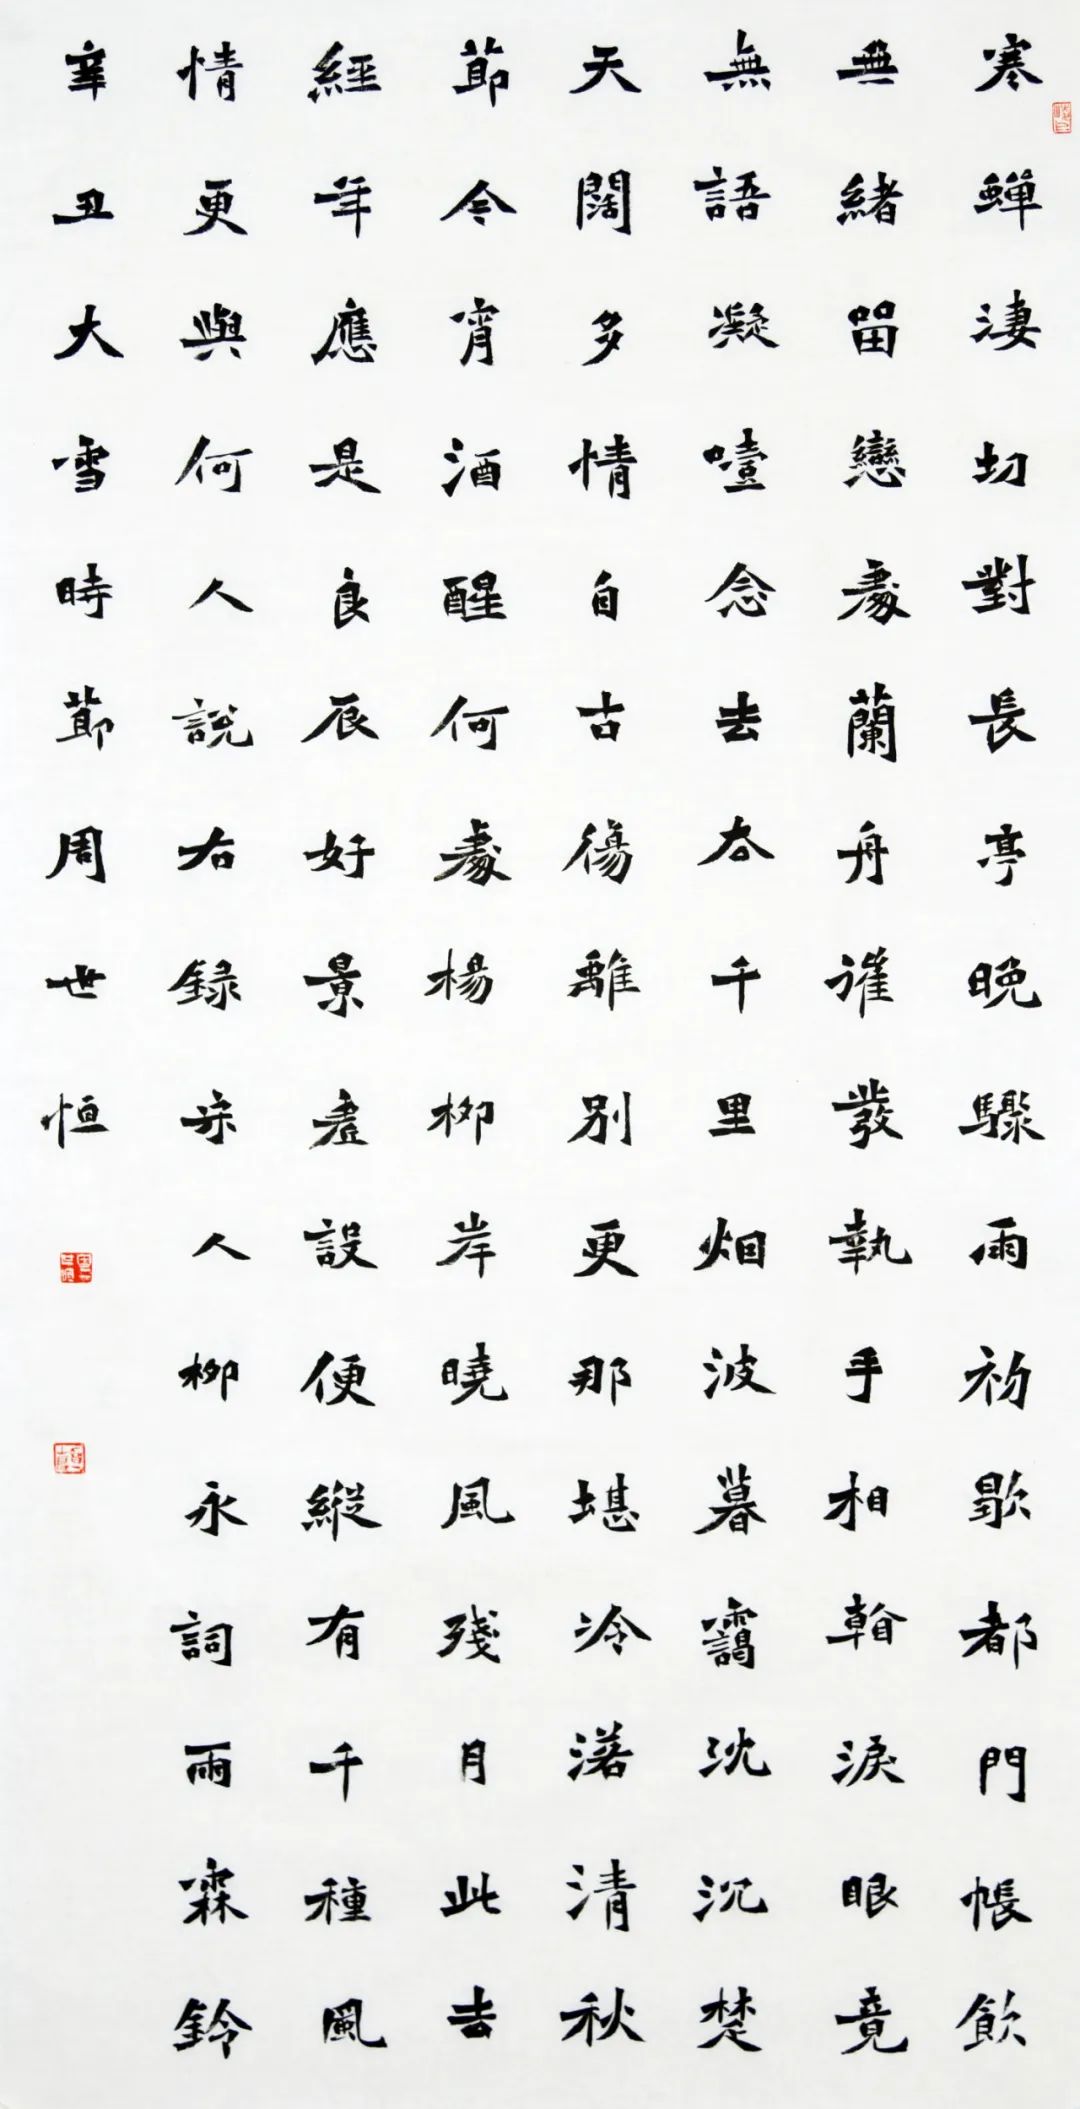 寒蟬淒切對長亭晚驟雨初歇都門帳飲
無緒留戀處蘭舟催發執手相看淚眼竟
無語凝噎念去厺千里烟波暮靄沈沉楚
天闊多情自古傷離別更那堪冷落清秋
節今宵酒醒何處楊柳岸曉風殘月此去
經年應是良辰好景虛設便縱有千種風
情更與何人說右録宋人柳永詞雨霖鈴
辛丑大雪時節周世恒